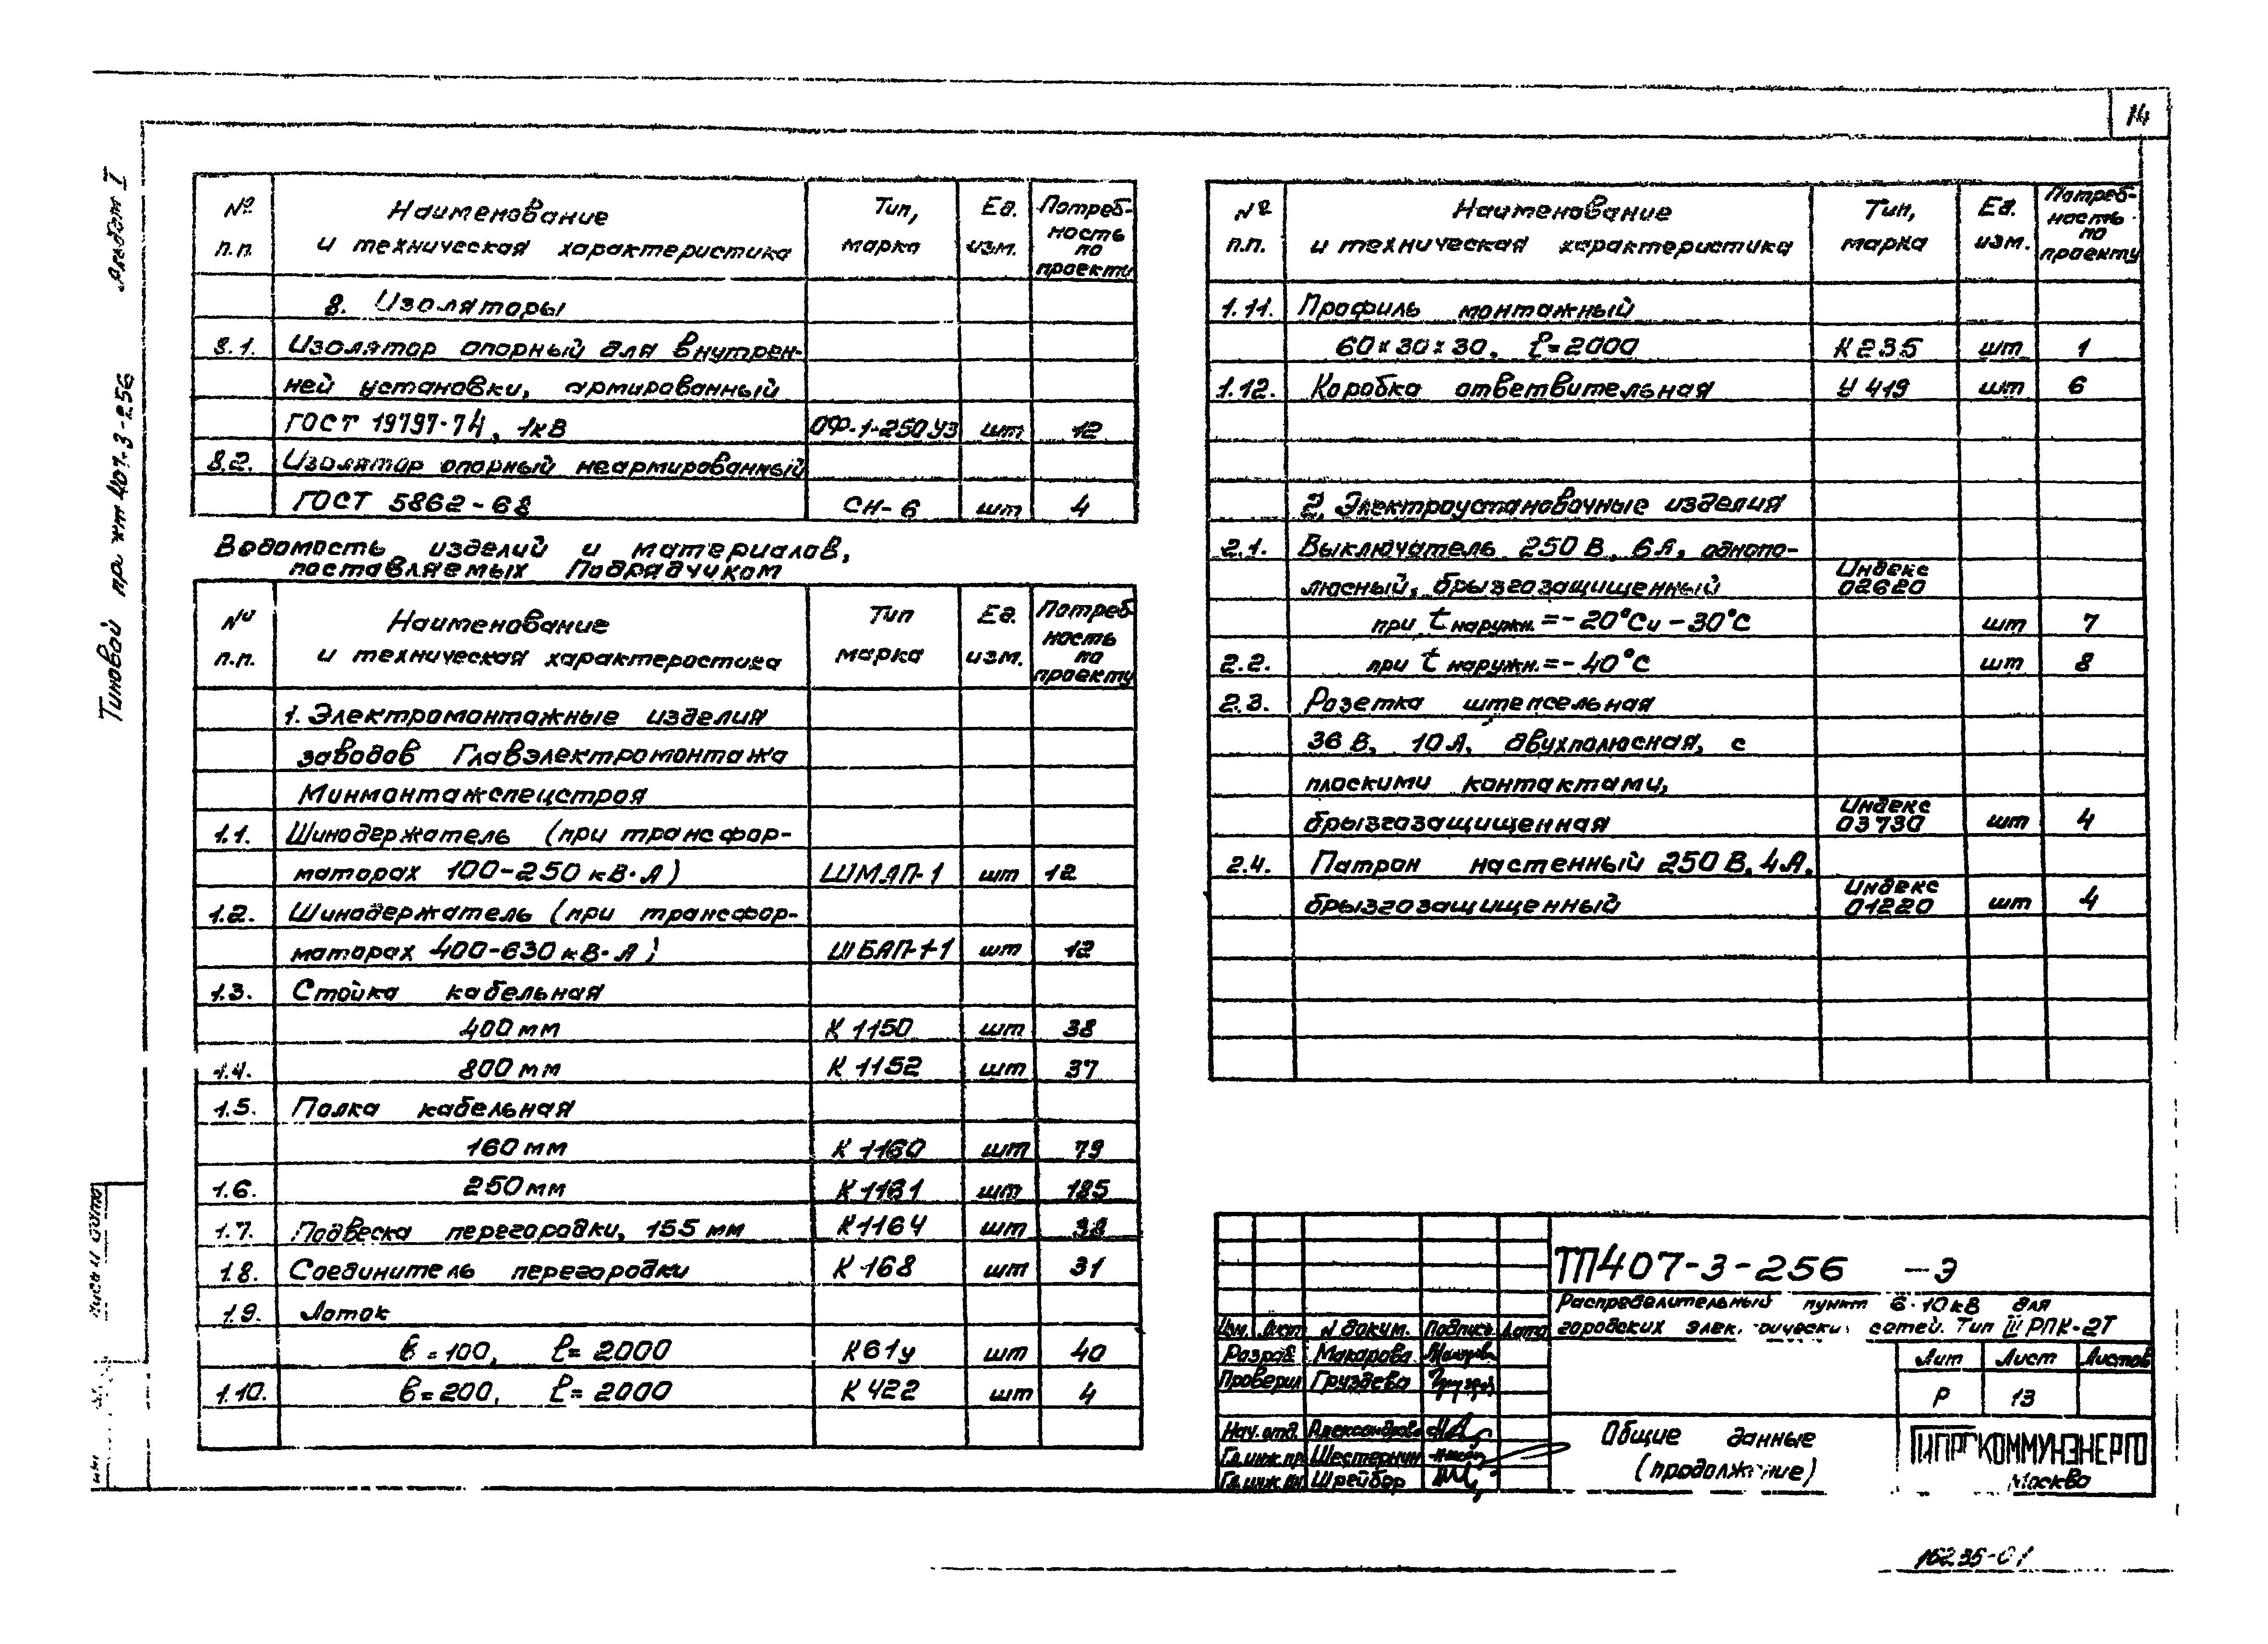 14
Альбом I
Типовой проект 407-3-256
№ п.п. Наименование и техническая характеристика Тип, марка Ед. изм. Потребность по проекту
8. Изоляторы
8.1. Изолятор опорный для внутрен-
ней установки, армированный
ГОСТ 19797-74, 1кВ ОФ-1-250У3 шт 12
8.2. Изолятор опорный неармированный
ГОСТ 5862-68 СН-6 шт 4
Ведомость изделий и материалов,
поставляемых Подрядчиком
№ п.п. Наименование и техническая характеристика Тип марка Ед. изм. Потребность по проекту
1. Электромонтажные изделия
заводов Главэлектромонтажа
Минмонтажспецстроя
1.1. Шинодержатель (при трансфор-
маторах 100-250 кВ·А) ШМАП-1 шт 12
1.2. Шинодержатель (при трансфор-
маторах 400-630 кВ·А) ШБАП-1-1 шт 12
1.3. Стойка кабельная
400 мм К 1150 шт 38
1.4. 800 мм К 1152 шт 37
1.5. Полка кабельная
160 мм К 1160 шт 79
1.6. 250 мм К 1161 шт 185
1.7. Подвеска перегородки, 155 мм К 1164 шт 38
1.8. Соединитель перегородки К 168 шт 31
1.9. Лоток
b=100, ℓ=2000 К61у шт 40
1.10. b=200, ℓ=2000 К 422 шт 4
№ п.п. Наименование и техническая характеристика Тип, марка Ед. изм. Потреб-ность по проекту
1.11. Профиль монтажный
60×30×30, ℓ=2000 К 235 шт 1
1.12. Коробка ответвительная У 419 шт 6
2. Электроустановочные изделия
2.1. Выключатель 250 В, 6А, однопо-
люсный, брызгозащищенный Индекс 02620
при t наружн.=-20°С и -30°С шт 7
2.2. при t наружн.=-40°С шт 8
2.3. Розетка штепсельная
36 В, 10 А, двухполюсная, с
плоскими контактами,
брызгозащищенная Индекс 03730 шт 4
2.4. Патрон настенный 250 В, 4А,
брызгозащищенный Индекс 01220 шт 4
ТП407-3-256 -Э
Распределительный пункт 6-10кВ для
городских электрических сетей. Тип III РПК-2Т
Изм. Лист № докум. Подпись Дата
Разраб Макарова
Проверил Груздева
Нач. отд. Александрова
Гл.инж.пр. Шестернин
Гл.инж.ин. Шрейбер
Лит Лист Листов
Р 13
Общие данные
(продолжение)
ГИПРОКОММУНЭНЕРГО
Москва
16235-01